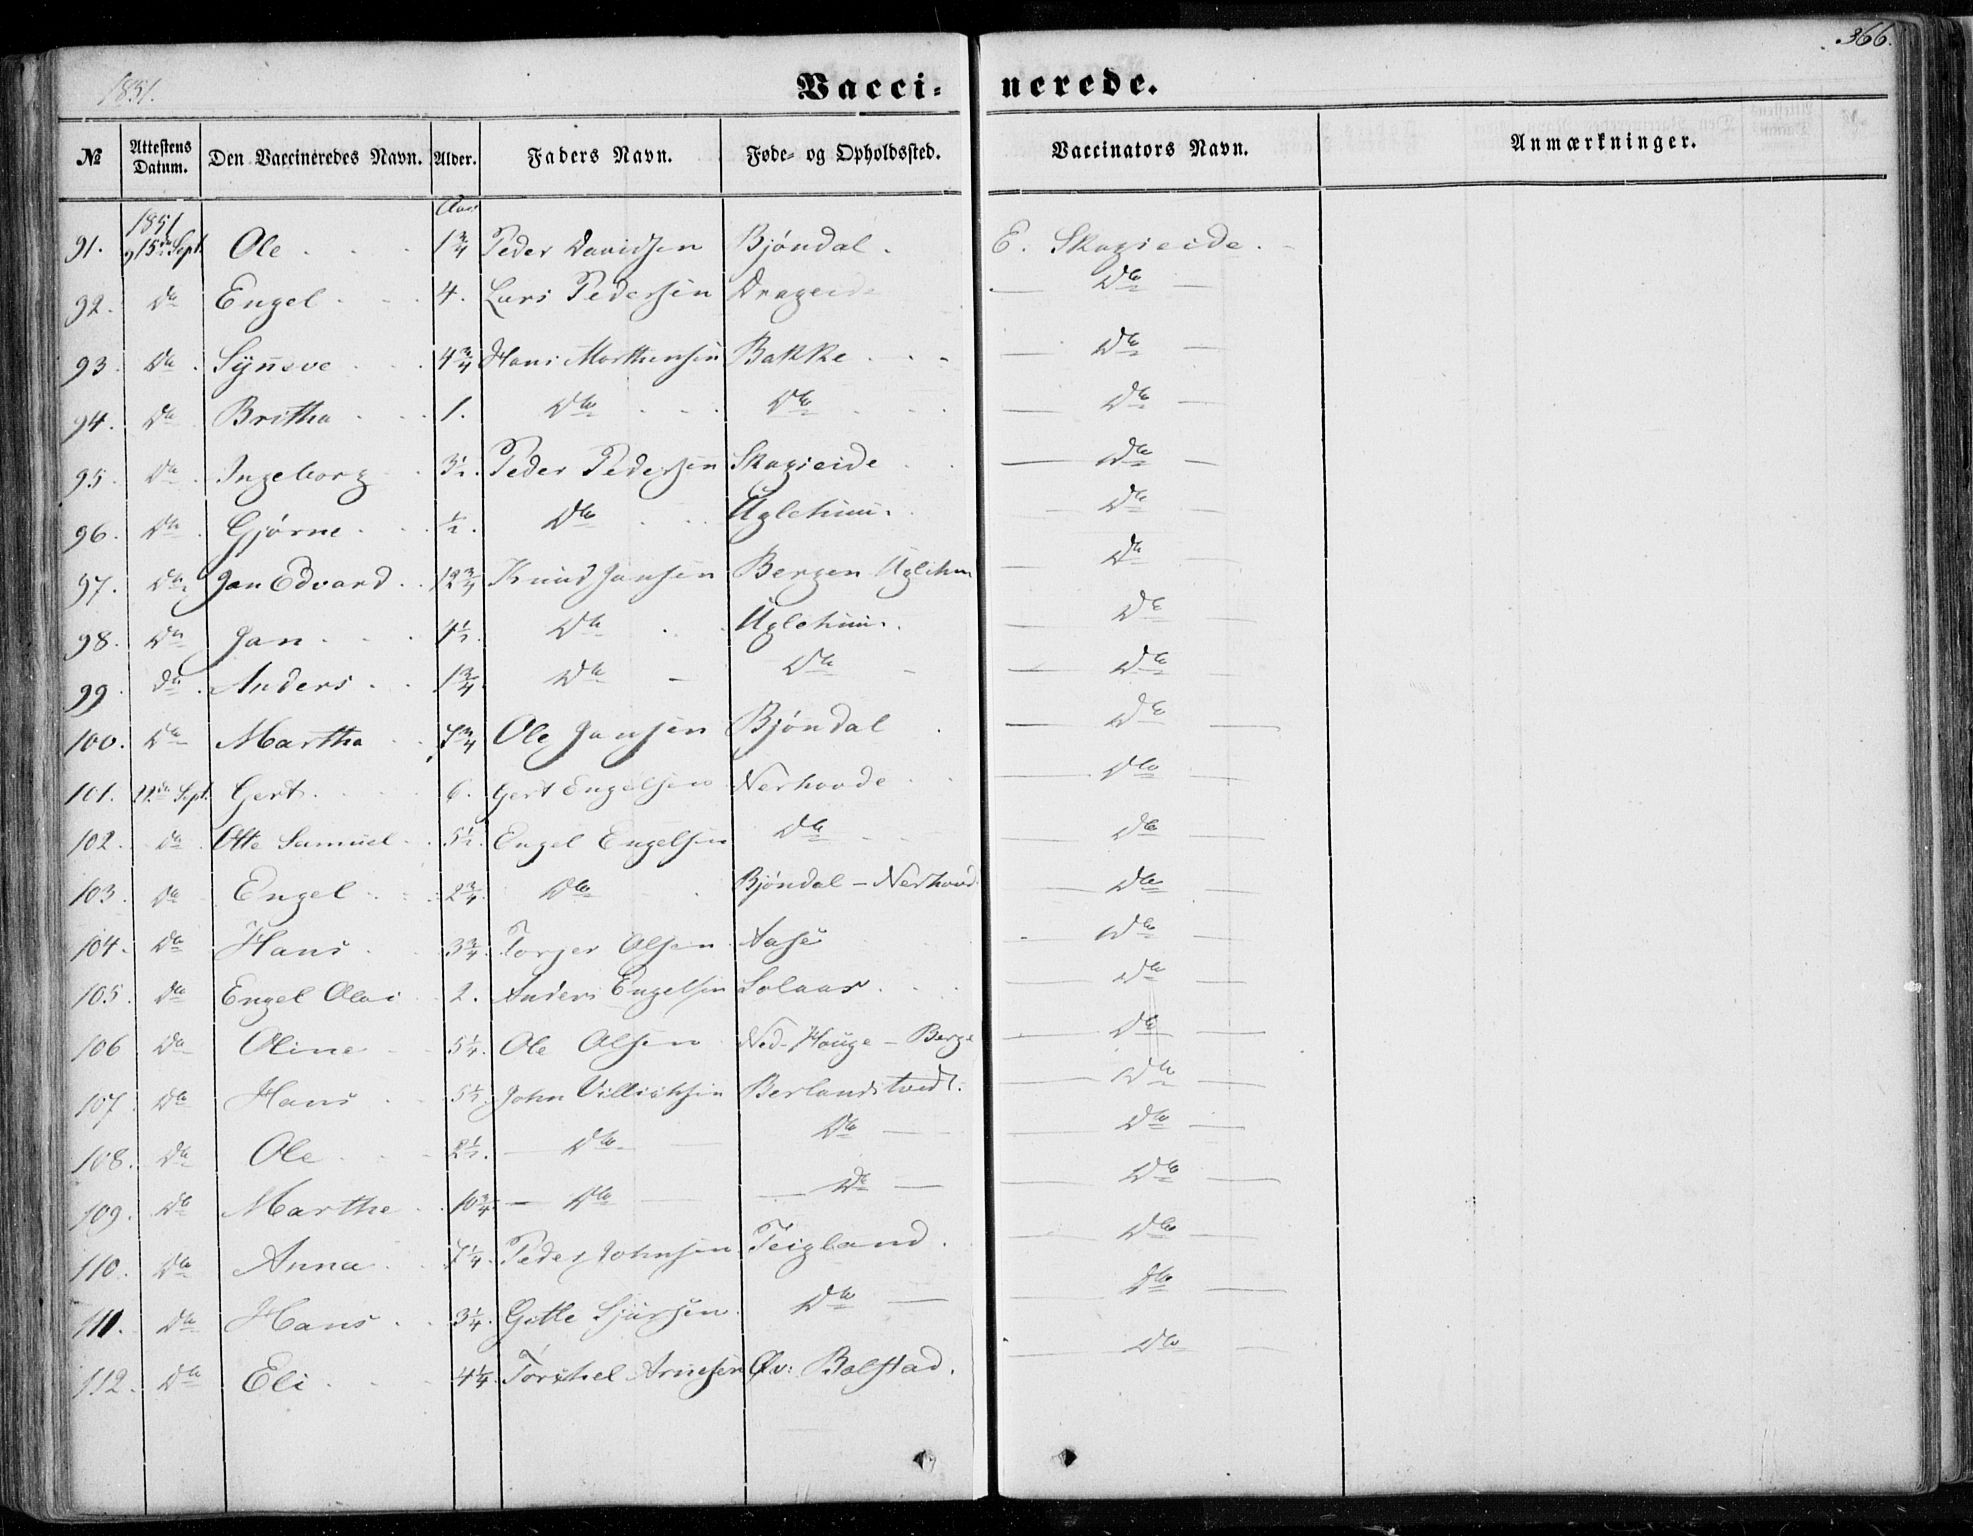 366.
1851.
Vacci- nerede.
№ Attestens Datum. Den Vaccineredes Navn. Alder. Faders Navn. Føde- og Opholdssted. Vaccinators Navn. Anmærkninger.
1851 Aar
91. 15de Sept. Ole 1 3/4 Peder Davidsen Bjöndal. E. Skagseide.
92. Do Engel 4. Lars Pedersen Drageide Do
93. Do Synneve 4 3/4 Hans Morthensen Bakke Do
94. Do Britha 1. Do Do Do
95. Do Ingeborg 3 1/2. Peder Pedersen Skagseide Do
96. Do Gjörne 1/2. Do Uglehuus. Do
97. Do Jan Edvard 12 3/4 Knud Jansen Bergen Uglehuu Do
98. Do Jan 4 1/2. Do Uglehuus. Do
99. Do Anders 1 3/4. Do Do Do
100. Do Martha 7 3/4 Ole Jansen Bjöndal Do
101. 22de Sept. Gert 6. Gert Engelsen Nerhovde Do
102. Do Otte Samuel 5 1/2. Engel Engelsen Do Do
103. Do Engel 2 3/4. Do Bjöndal - Nerhovd Do
104. Do Hans 3 3/4. Torger Olsen Aase Do
105. Do Engel Olai 2. Anders Engelsen Solaas Do
106 Do Oline 5 1/4. Ole Olsen Ned-Houge - Berge Do
107 Do Hans 5 1/2. John Villichsen Berlandstvedt. Do
108. Do Ole 2 1/2. Do Do Do
109. Do Marthe 10 3/4 Do Do Do
110. Do Anna 7 1/4. Peder Johnsen Teigland. Do
111. Do Hans 3 1/4. Gitle Sjursen Do Do
112. Do Eli 4 1/4. Torchel Arnesen Øv: Bolstad. Do